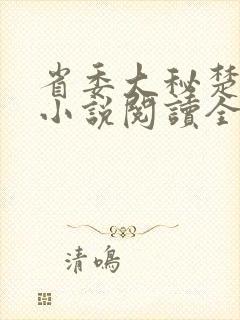 省委大秘楚
小說閱讀全
清鳴